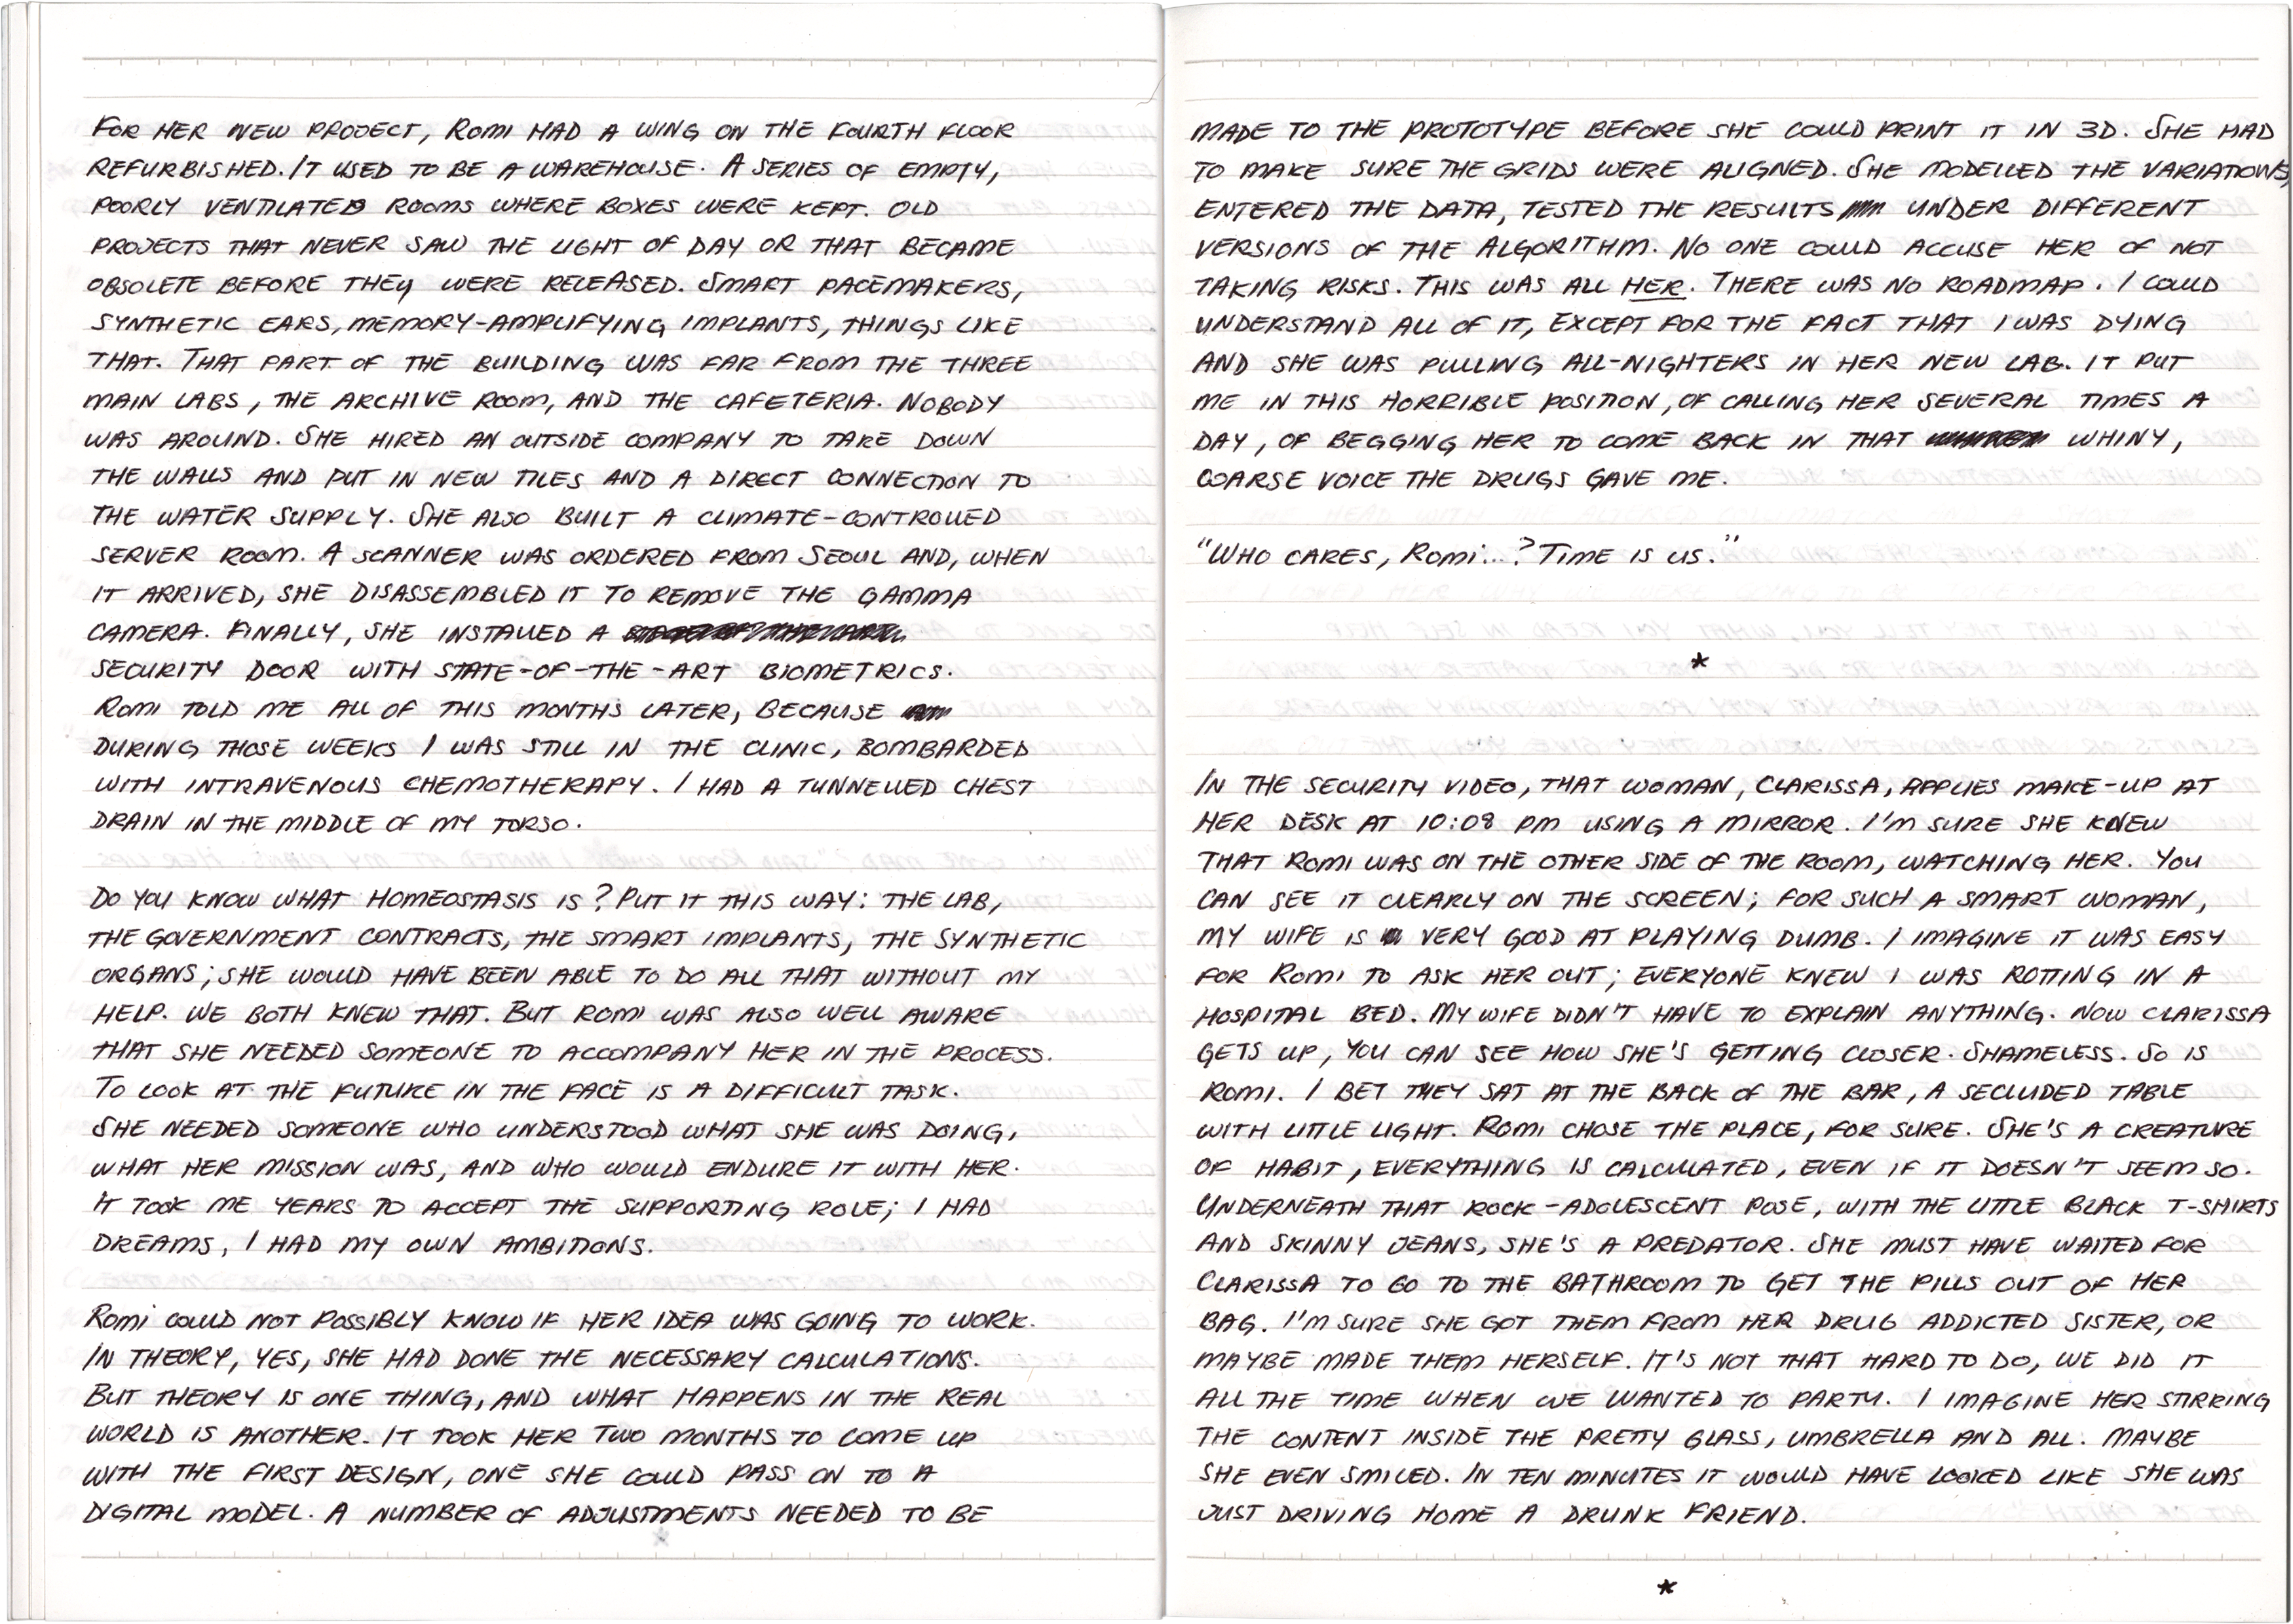 FOR HER NEW PROJECT, ROMI HAD A WING ON THE FOURTH FLOOR
REFURBISHED. IT USED TO BE A WAREHOUSE. A SERIES OF EMPTY,
POORLY VENTILATED ROOMS WHERE BOXES WERE KEPT. OLD
PROJECTS THAT NEVER SAW THE LIGHT OF DAY OR THAT BECAME
OBSOLETE BEFORE THEY WERE RELEASED. SMART PACEMAKERS,
SYNTHETIC EARS, MEMORY-AMPLIFYING IMPLANTS, THINGS LIKE
THAT. THAT PART OF THE BUILDING WAS FAR FROM THE THREE
MAIN LABS, THE ARCHIVE ROOM, AND THE CAFETERIA. NOBODY
WAS AROUND. SHE HIRED AN OUTSIDE COMPANY TO TAKE DOWN
THE WALLS AND PUT IN NEW TILES AND A DIRECT CONNECTION TO
THE WATER SUPPLY. SHE ALSO BUILT A CLIMATE-CONTROLLED
SERVER ROOM. A SCANNER WAS ORDERED FROM SEOUL AND, WHEN
IT ARRIVED, SHE DISASSEMBLED IT TO REMOVE THE GAMMA
CAMERA. FINALLY, SHE INSTALLED A
SECURITY DOOR WITH STATE-OF-THE-ART BIOMETRICS.
ROMI TOLD ME ALL OF THIS MONTHS LATER, BECAUSE
DURING THOSE WEEKS I WAS STILL IN THE CLINIC, BOMBARDED
WITH INTRAVENOUS CHEMOTHERAPY. I HAD A TUNNELLED CHEST
DRAIN IN THE MIDDLE OF MY TORSO.
DO YOU KNOW WHAT HOMEOSTASIS IS? PUT IT THIS WAY: THE LAB,
THE GOVERNMENT CONTRACTS, THE SMART IMPLANTS, THE SYNTHETIC
ORGANS; SHE WOULD HAVE BEEN ABLE TO DO ALL THAT WITHOUT MY
HELP. WE BOTH KNEW THAT. BUT ROMI WAS ALSO WELL AWARE
THAT SHE NEEDED SOMEONE TO ACCOMPANY HER IN THE PROCESS.
TO LOOK AT THE FUTURE IN THE FACE IS A DIFFICULT TASK.
SHE NEEDED SOMEONE WHO UNDERSTOOD WHAT SHE WAS DOING,
WHAT HER MISSION WAS, AND WHO WOULD ENDURE IT WITH HER.
IT TOOK ME YEARS TO ACCEPT THE SUPPORTING ROLE; I HAD
DREAMS, I HAD MY OWN AMBITIONS.
ROMI COULD NOT POSSIBLY KNOW IF HER IDEA WAS GOING TO WORK.
IN THEORY, YES, SHE HAD DONE THE NECESSARY CALCULATIONS.
BUT THEORY IS ONE THING, AND WHAT HAPPENS IN THE REAL
WORLD IS ANOTHER. IT TOOK HER TWO MONTHS TO COME UP
WITH THE FIRST DESIGN, ONE SHE COULD PASS ON TO A
DIGITAL MODEL. A NUMBER OF ADJUSTMENTS NEEDED TO BE
MADE TO THE PROTOTYPE BEFORE SHE COULD PRINT IT IN 3D. SHE HAD
TO MAKE SURE THE GRIDS WERE ALIGNED. SHE MODELLED THE VARIATIONS,
ENTERED THE DATA, TESTED THE RESULTS UNDER DIFFERENT
VERSIONS OF THE ALGORITHM. NO ONE COULD ACCUSE HER OF NOT
TAKING RISKS. THIS WAS ALL HER. THERE WAS NO ROADMAP. I COULD
UNDERSTAND ALL OF IT, EXCEPT FOR THE FACT THAT I WAS DYING
AND SHE WAS PULLING ALL-NIGHTERS IN HER NEW LAB. IT PUT
ME IN THIS HORRIBLE POSITION, OF CALLING HER SEVERAL TIMES A
DAY, OF BEGGING HER TO COME BACK IN THAT WHINY,
COARSE VOICE THE DRUGS GAVE ME.
"WHO CARES, ROMI...? TIME IS US."
*
IN THE SECURITY VIDEO, THAT WOMAN, CLARISSA, APPLIES MAKE-UP AT
HER DESK AT 10:08 PM USING A MIRROR. I'M SURE SHE KNEW
THAT ROMI WAS ON THE OTHER SIDE OF THE ROOM, WATCHING HER. YOU
CAN SEE IT CLEARLY ON THE SCREEN; FOR SUCH A SMART WOMAN,
MY WIFE IS VERY GOOD AT PLAYING DUMB. I IMAGINE IT WAS EASY
FOR ROMI TO ASK HER OUT; EVERYONE KNEW I WAS ROTTING IN A
HOSPITAL BED. MY WIFE DIDN'T HAVE TO EXPLAIN ANYTHING. NOW CLARISSA
GETS UP, YOU CAN SEE HOW SHE'S GETTING CLOSER. SHAMELESS. SO IS
ROMI. I BET THEY SAT AT THE BACK OF THE BAR, A SECLUDED TABLE
WITH LITTLE LIGHT. ROMI CHOSE THE PLACE, FOR SURE. SHE'S A CREATURE
OF HABIT, EVERYTHING IS CALCULATED, EVEN IF IT DOESN'T SEEM SO.
UNDERNEATH THAT ROCK-ADOLESCENT POSE, WITH THE LITTLE BLACK T-SHIRTS
AND SKINNY JEANS, SHE'S A PREDATOR. SHE MUST HAVE WAITED FOR
CLARISSA TO GO TO THE BATHROOM TO GET THE PILLS OUT OF HER
BAG. I'M SURE SHE GOT THEM FROM HER DRUG ADDICTED SISTER, OR
MAYBE MADE THEM HERSELF. IT'S NOT THAT HARD TO DO, WE DID IT
ALL THE TIME WHEN WE WANTED TO PARTY. I IMAGINE HER STIRRING
THE CONTENT INSIDE THE PRETTY GLASS, UMBRELLA AND ALL. MAYBE
SHE EVEN SMILED. IN TEN MINUTES IT WOULD HAVE LOOKED LIKE SHE WAS
JUST DRIVING HOME A DRUNK FRIEND.
*